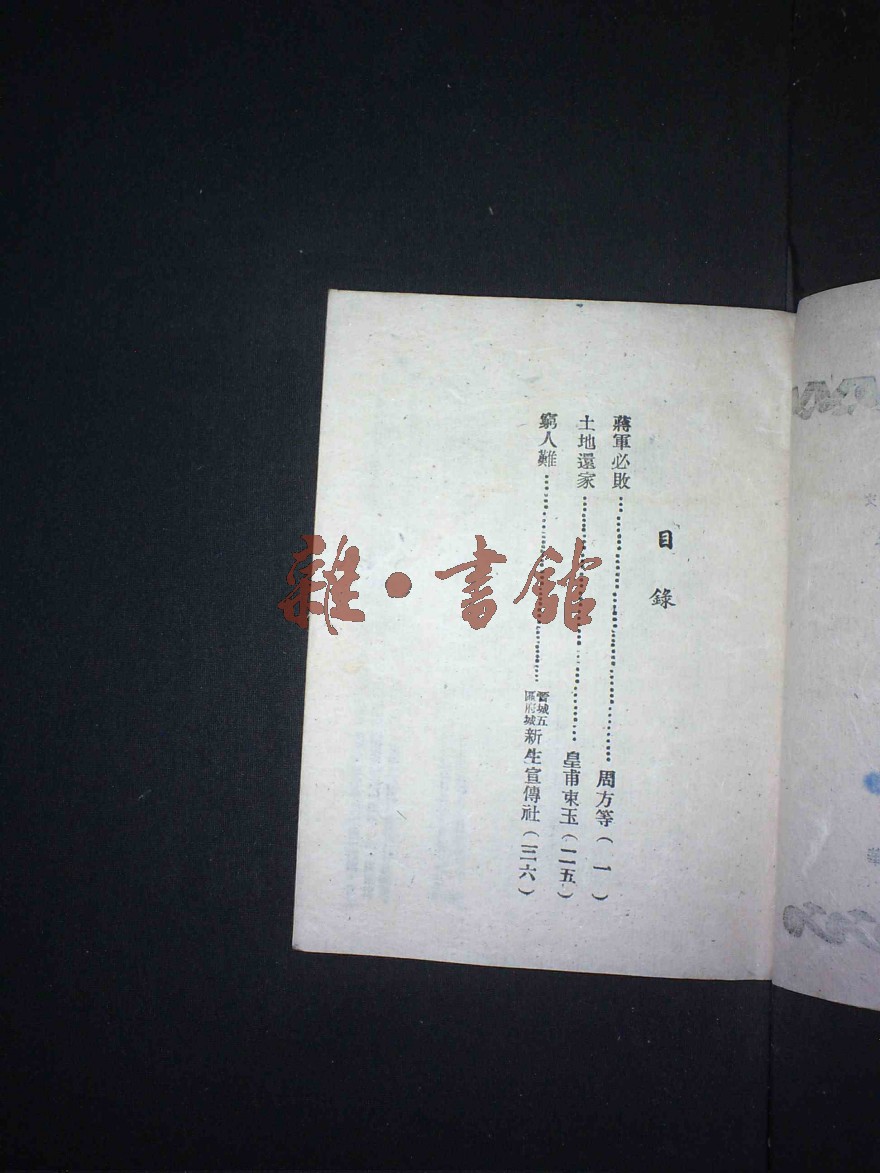 目錄
蔣軍必敗……周方等(一)
土地還家……皇甫束玉(二五)
窮人難……管城五區府城新生宣傳社(三六)
雜·書館